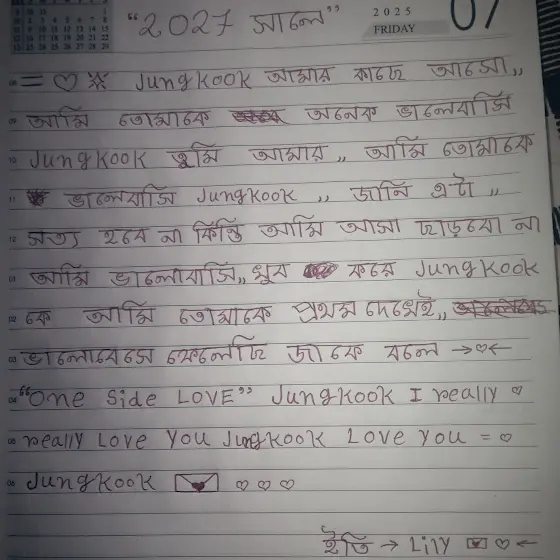 "2027 সালে"
2025
FRIDAY
07
= ♡ Jungkook আমার কাছে আসো,,
আমি তোমাকে অনেক ভালোবাসি
Jungkook তুমি আমার,, আমি তোমাকে
ভালোবাসি Jungkook ,, জানি এটা ,,
সত্য হবে না কিন্তি আমি আসা ছাড়বো না
আমি ভালোবাসি,, খুব করে Jungkook
কে আমি তোমাকে প্রথম দেখেই,,
ভালোবেসে ফেলেছি জা কে বলে →♡←
"One Side LOVE" Jungkook I really ♡
really Love You Jungkook Love you = ♡
Jungkook ♡ ♡ ♡
ইতি → Lily ♡ ←